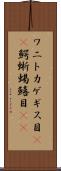 ワニトカゲギス目
鰐蜥蜴鱚目